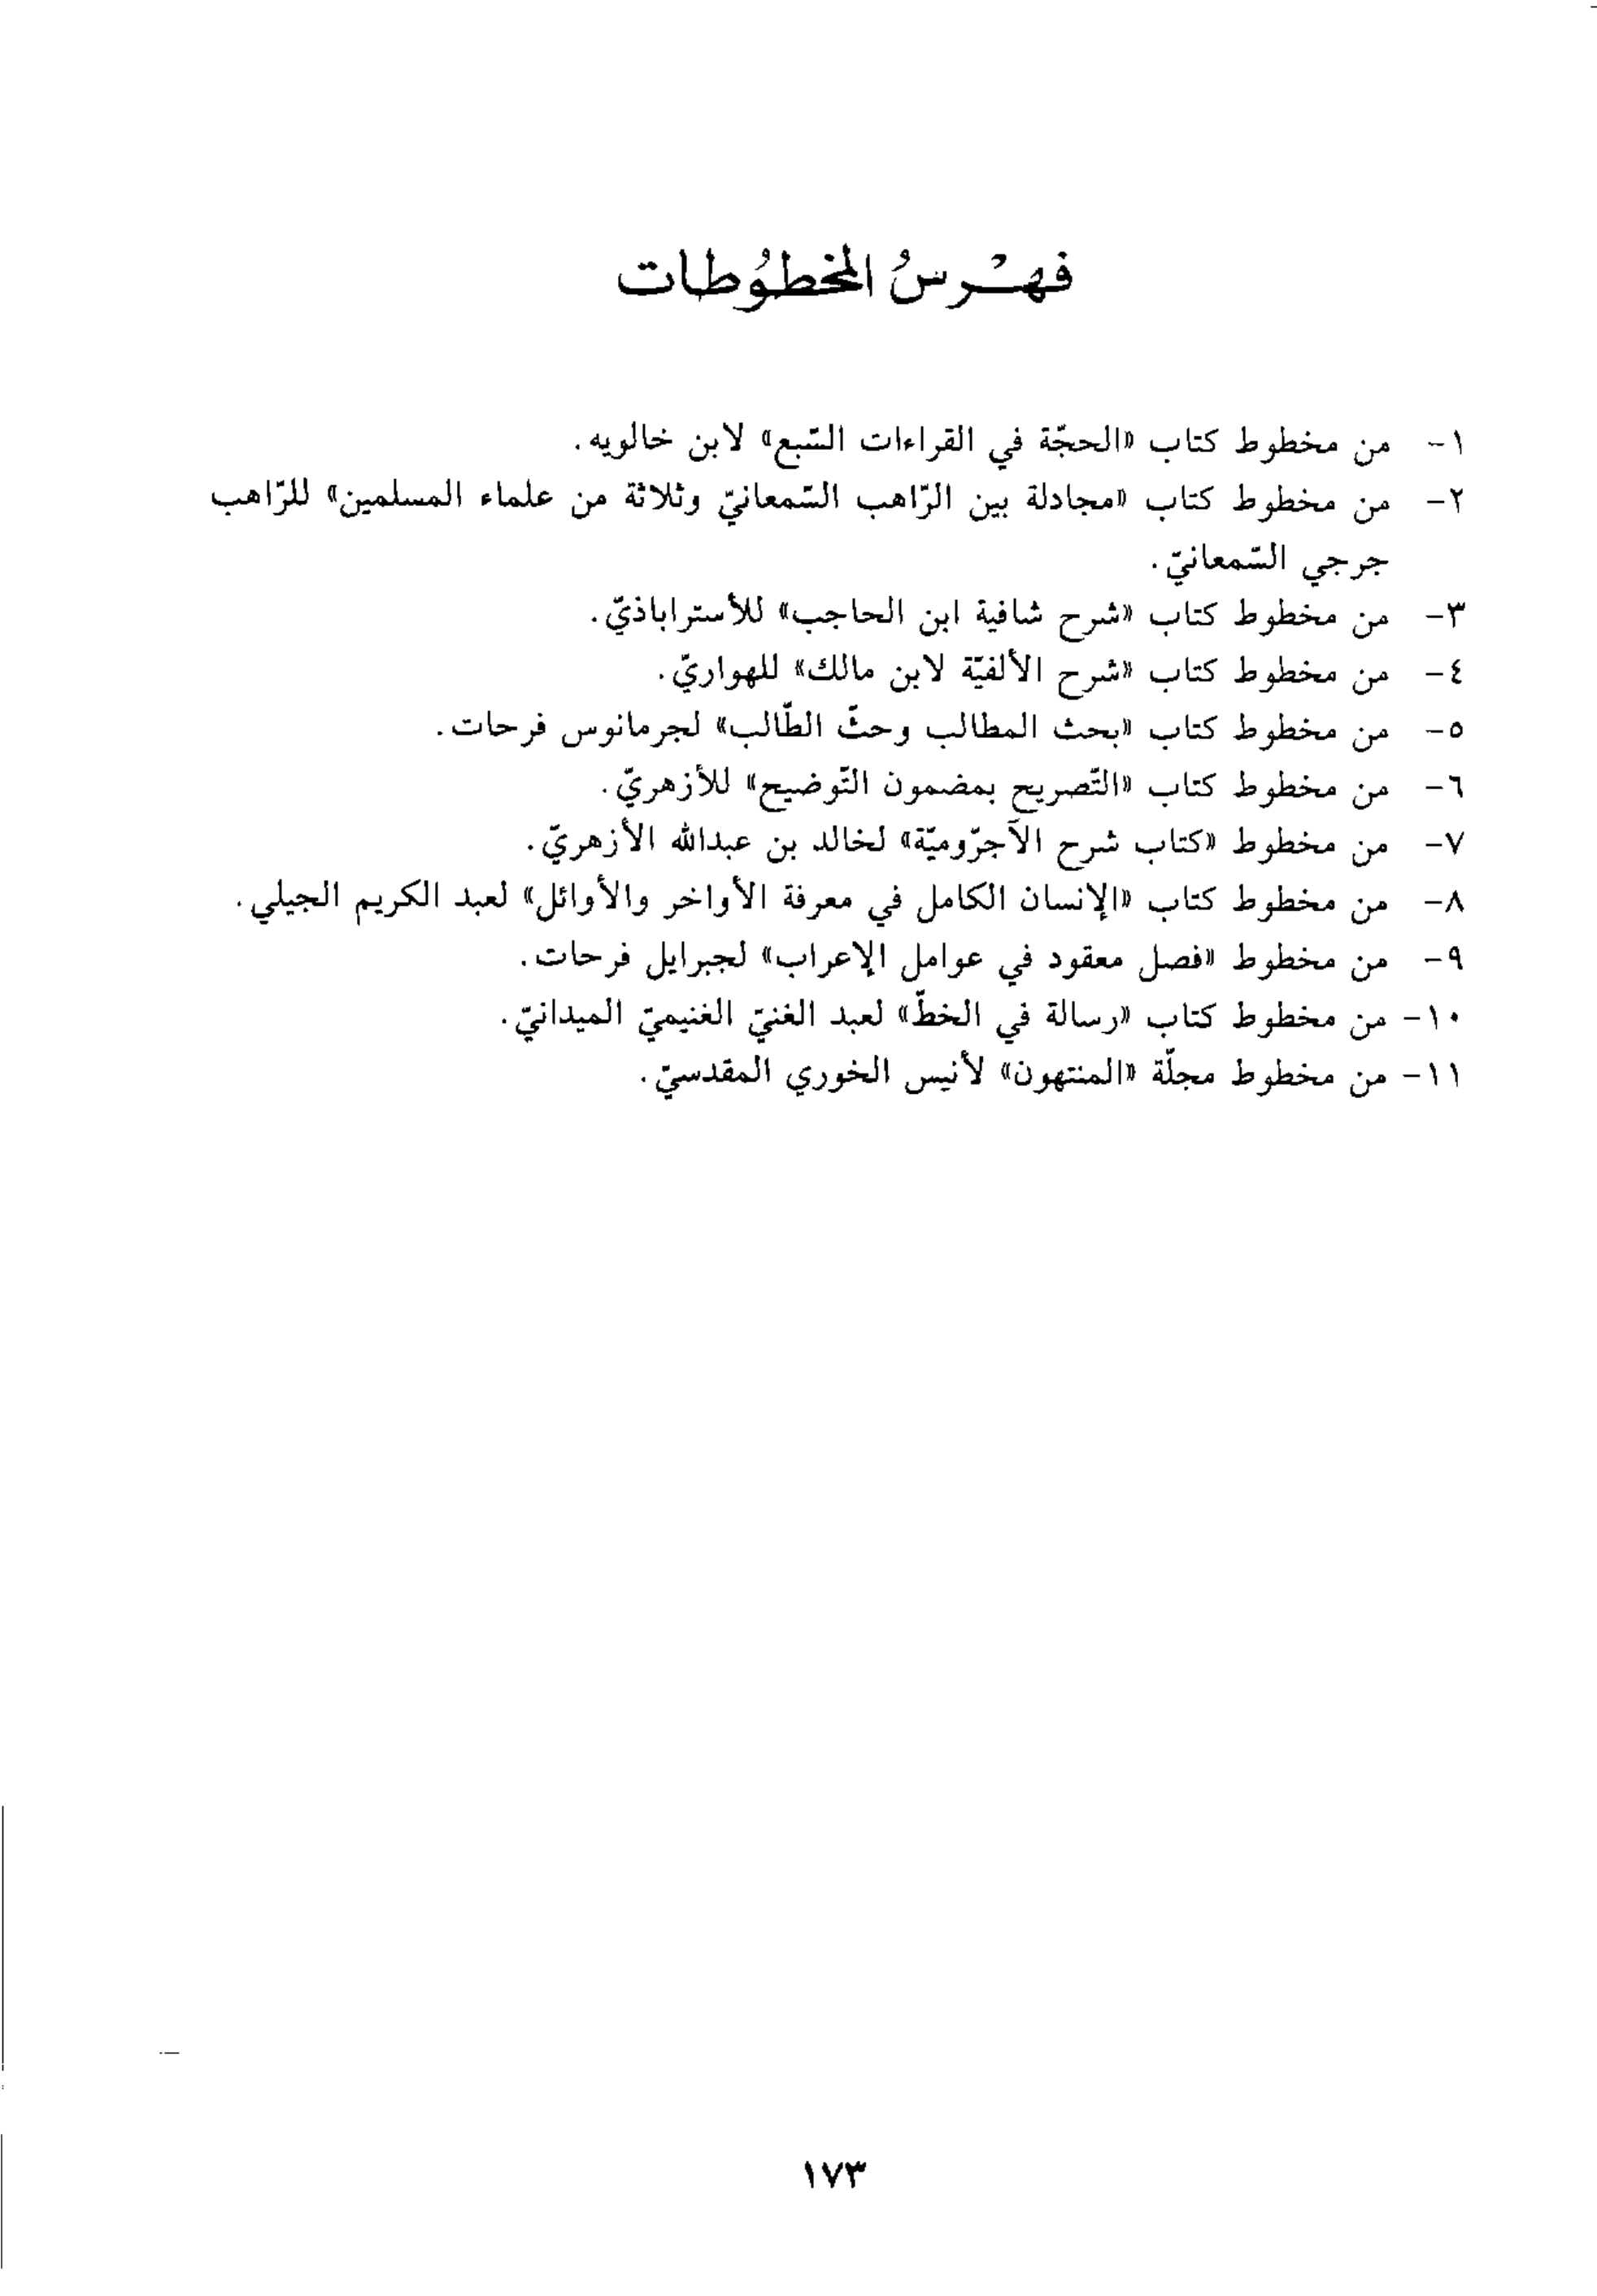 فهْرسُ المخطوُطات
١- من مخطوط كتاب «الحجّة في القراءات السّبع» لابن خالويه.
٢- من مخطوط كتاب «مجادلة بين الرّاهب السّمعانيّ وثلاثة من علماء المسلمين» للرّاهب
جرجي السّمعانيّ.
٣- من مخطوط كتاب «شرح شافية ابن الحاجب» للأستراباذيّ.
٤- من مخطوط كتاب «شرح الألفيّة لابن مالك» للهواريّ.
٥- من مخطوط كتاب «بحث المطالب وحثّ الطّالب» لجرمانوس فرحات.
٦- من مخطوط كتاب «التّصريح بمضمون التّوضيح» للأزهريّ.
٧- من مخطوط «كتاب شرح الآجرّوميّة» لخالد بن عبدالله الأزهريّ.
٨- من مخطوط كتاب «الإنسان الكامل في معرفة الأواخر والأوائل» لعبد الكريم الجيلي.
٩- من مخطوط «فصل معقود في عوامل الإعراب» لجبرايل فرحات.
١٠- من مخطوط كتاب «رسالة في الخطّ» لعبد الغنيّ الغنيميّ الميدانيّ.
١١- من مخطوط مجلّة «المنتهون» لأنيس الخوري المقدسيّ.
١٧٣